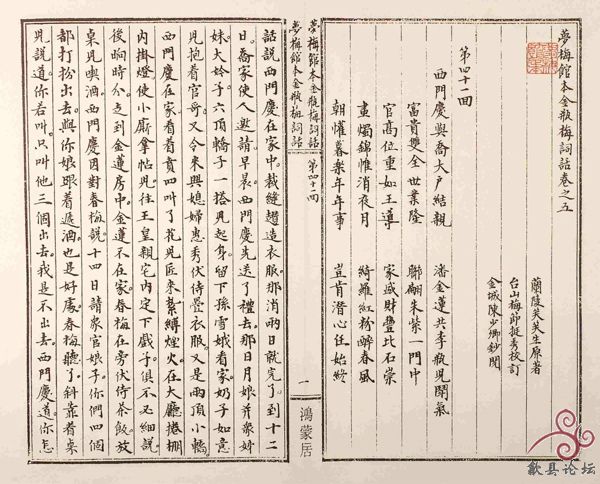 夢梅館本金瓶梅詞話卷之五
蘭陵笑笑生原著
台山梅節挺秀校訂
金城陳少卿鈔閱
第四十一回
西門慶與喬大戶結親　潘金蓮共李瓶兒鬭氣
富貴雙全世業隆　聯翩朱紫一門中
官高位重如王導　家盛財豐比石崇
畫燭錦帷消夜月　綺羅紅粉醉春風
朝懽暮樂年年事　豈肯潛心任始終
夢梅館本金瓶梅詞話　第四十一回
一
鴻蒙居
話說西門慶在家中。裁縫趲造衣服。那消兩日就完了。到十二
日。喬家使人邀請。早晨。西門慶先送了禮去。那日月娘并衆姊
妹大妗子。六頂轎子一搭兒起身。留下孫雪娥看家。奶子如意
兒抱着官哥。又令來興媳婦惠秀伏侍疊衣服。又是兩頂小轎。
西門慶在家。看着賁四叫了花兒匠來。紮縛烟火。在大廳捲棚
內掛燈。使小廝拿帖兒往王皇親宅內定下戲子。俱不必細說。
後晌時分。走到金蓮房中。金蓮不在家。春梅在旁伏侍茶飯。放
桌兒喫酒。西門慶因對春梅說。十四日請衆官娘子。你們四個
都打扮出去。與你娘跟着遞酒。也是好處。春梅聽了。斜靠着桌
兒說道。你若叫。只叫他三個出去。我是不出去。西門慶道。你怎
歙县论坛